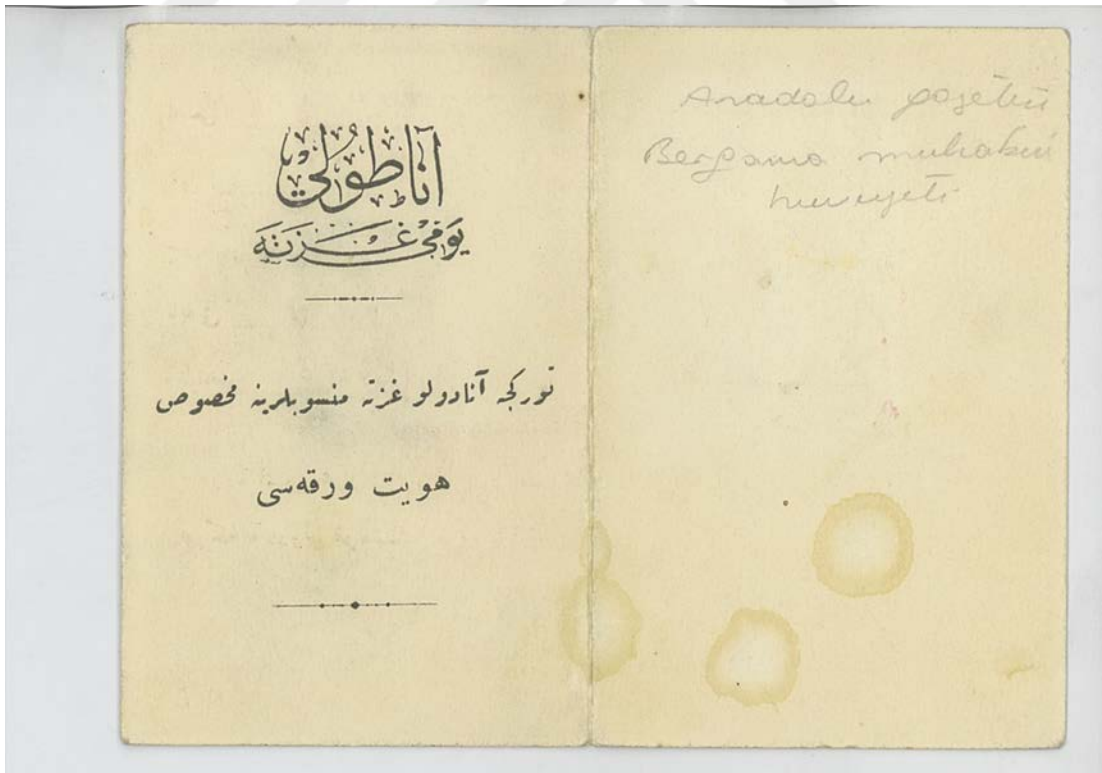 آناطولی
یومی غزته
تورکجه آنادولو غزته منسوبلرینه مخصوص
هویت ورقه‌سی
Anadolu gazetesi
Bergama muhabiri
huviyeti